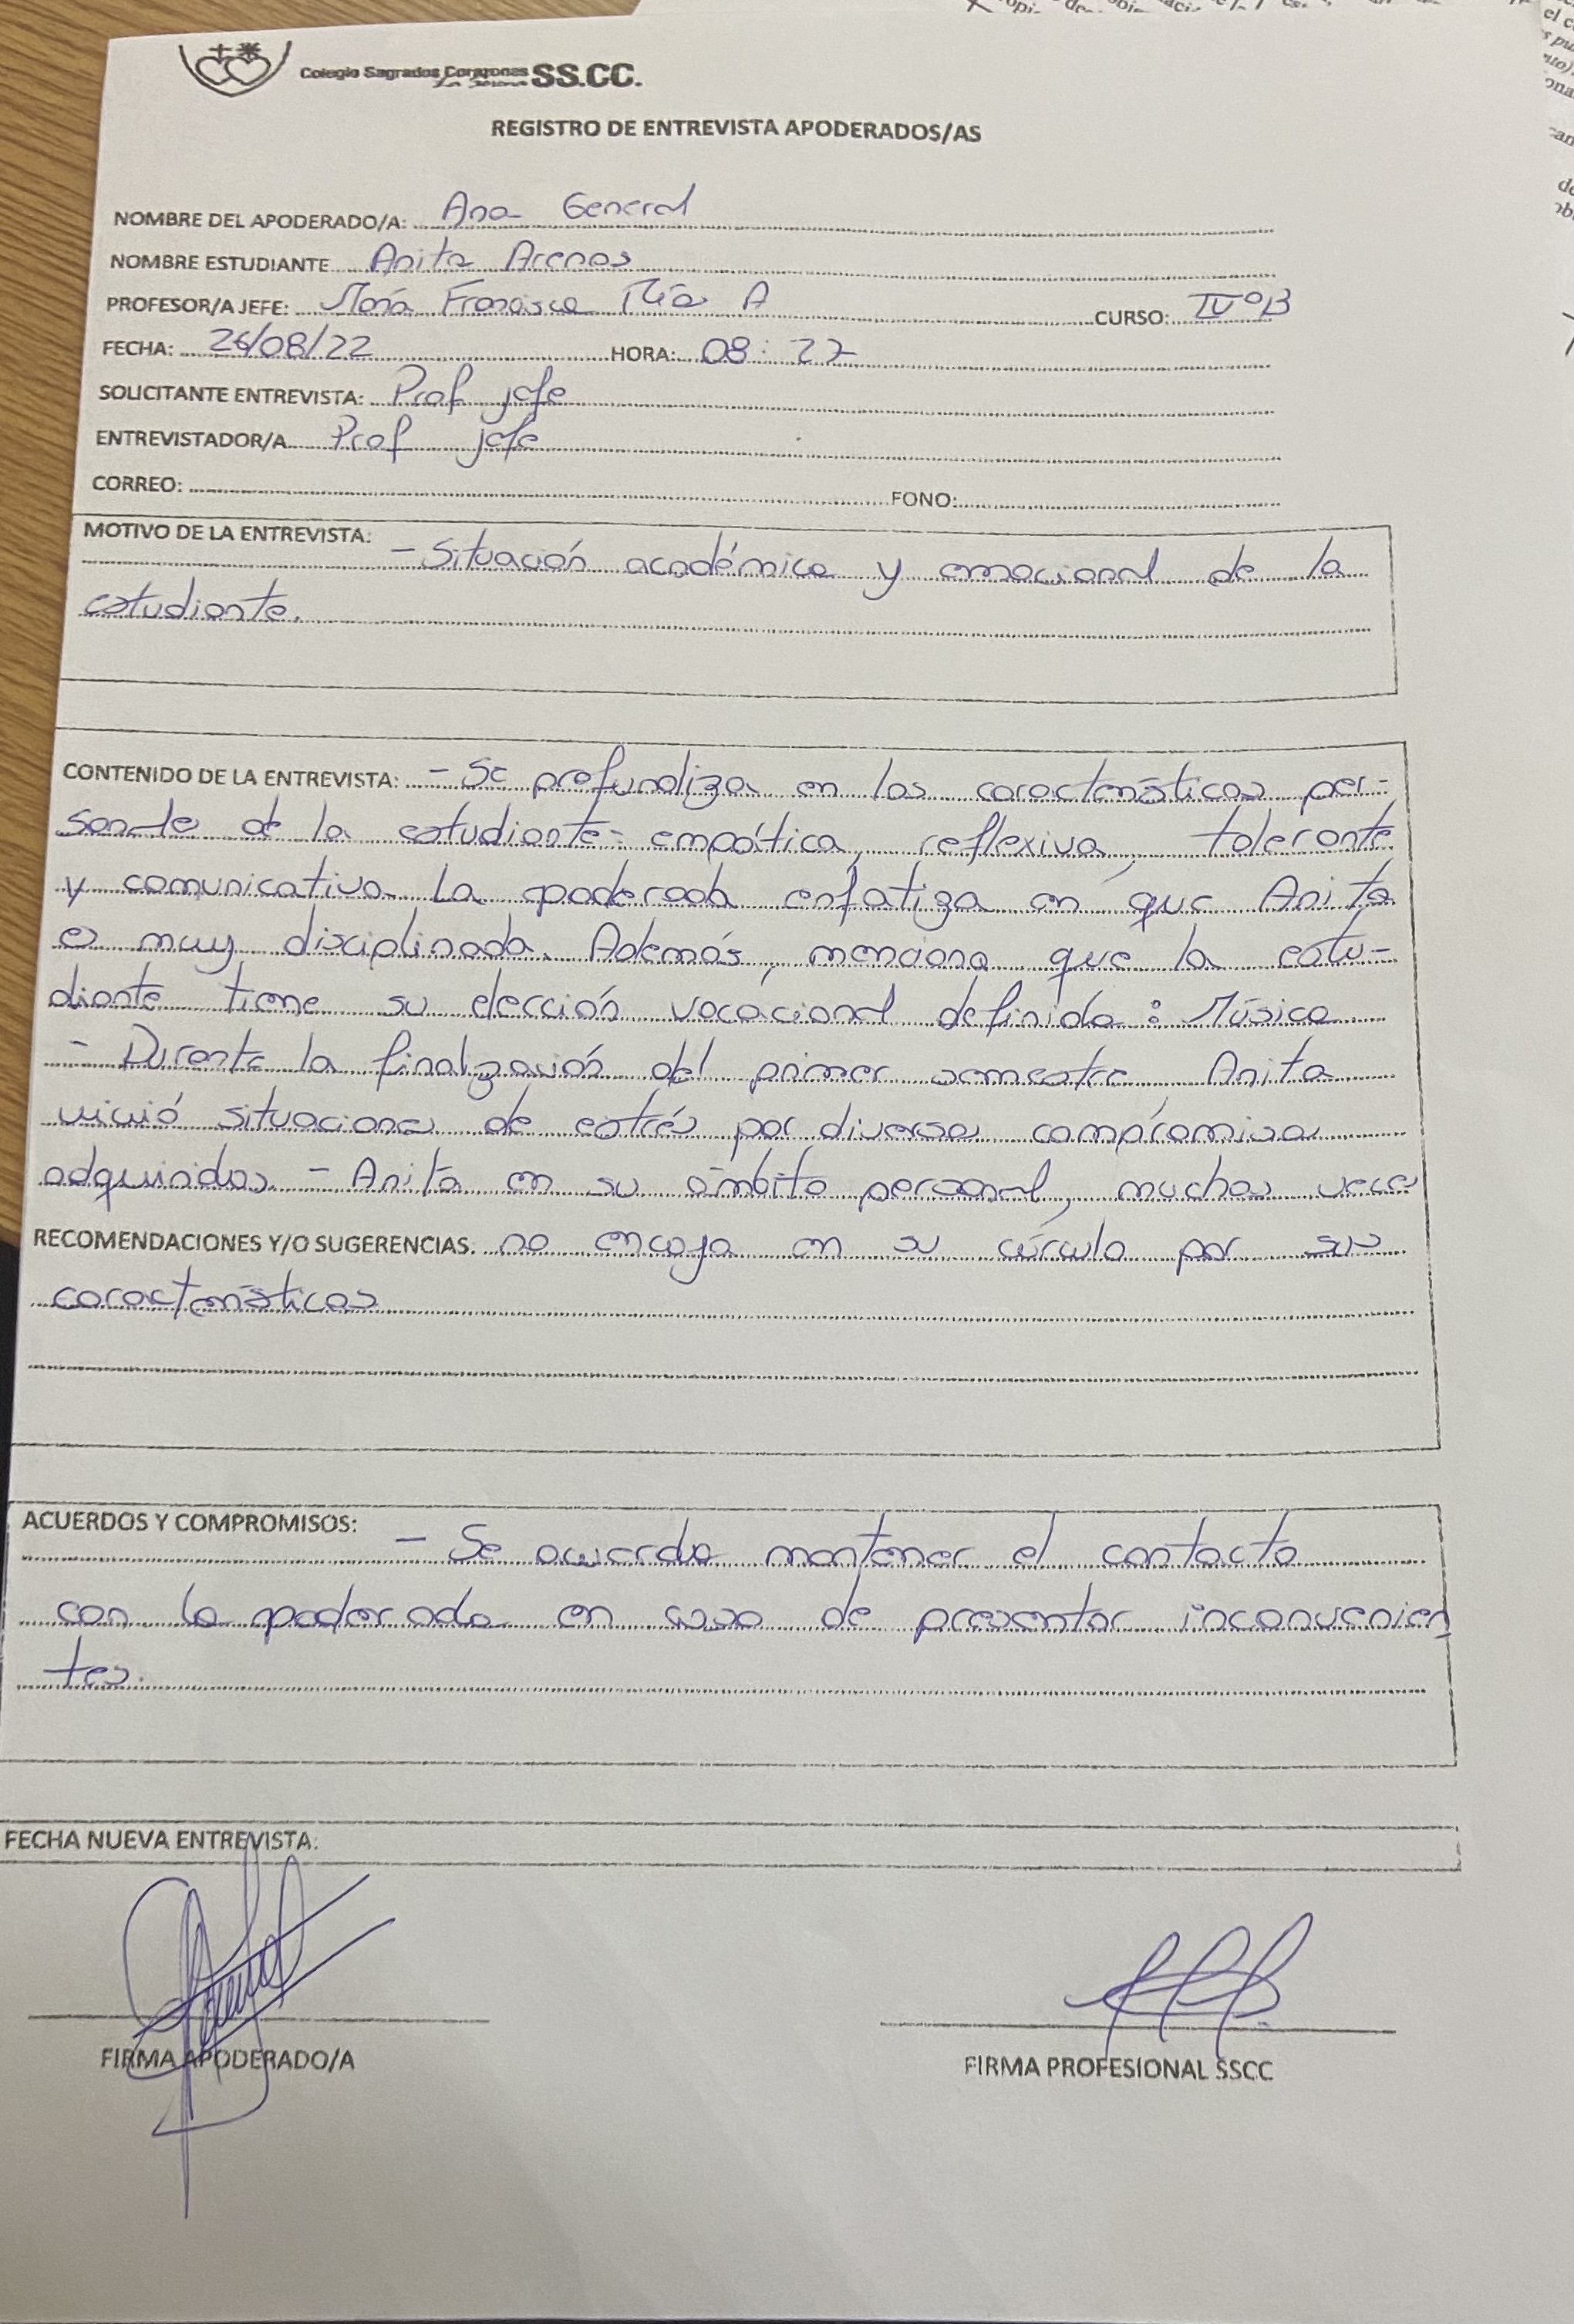 Colegio Sagrados Corazones SS.CC.
La Serena
REGISTRO DE ENTREVISTA APODERADOS/AS
NOMBRE DEL APODERADO/A: Ana General
NOMBRE ESTUDIANTE Anita Arenas
PROFESOR/A JEFE: María Francisca A CURSO: IVºB
FECHA: 26/08/22 HORA: 08:
SOLICITANTE ENTREVISTA: Prof jefe
ENTREVISTADOR/A Prof jefe
CORREO: FONO:
MOTIVO DE LA ENTREVISTA: - Situación académica y emocional de la
estudiante.
CONTENIDO DE LA ENTREVISTA: - Se profundiza en las características per-
sonales de la estudiante: empática, reflexiva, tolerante
y comunicativa. La apoderada enfatiza en que Anita
es muy disciplinada. Además, menciona que la estu-
diante tiene su elección vocacional definida: Música
- Durante la finalización del primer semestre Anita
vivió situaciones de estrés por diversos compromisos
adquiridos. - Anita en su ámbito personal, muchas veces
RECOMENDACIONES Y/O SUGERENCIAS. no encaja en su círculo por sus
características
ACUERDOS Y COMPROMISOS: - Se acuerda mantener el contacto
con la apoderada en caso de presentar inconvenien
tes.
FECHA NUEVA ENTREVISTA:
FIRMA APODERADO/A FIRMA PROFESIONAL SSCC